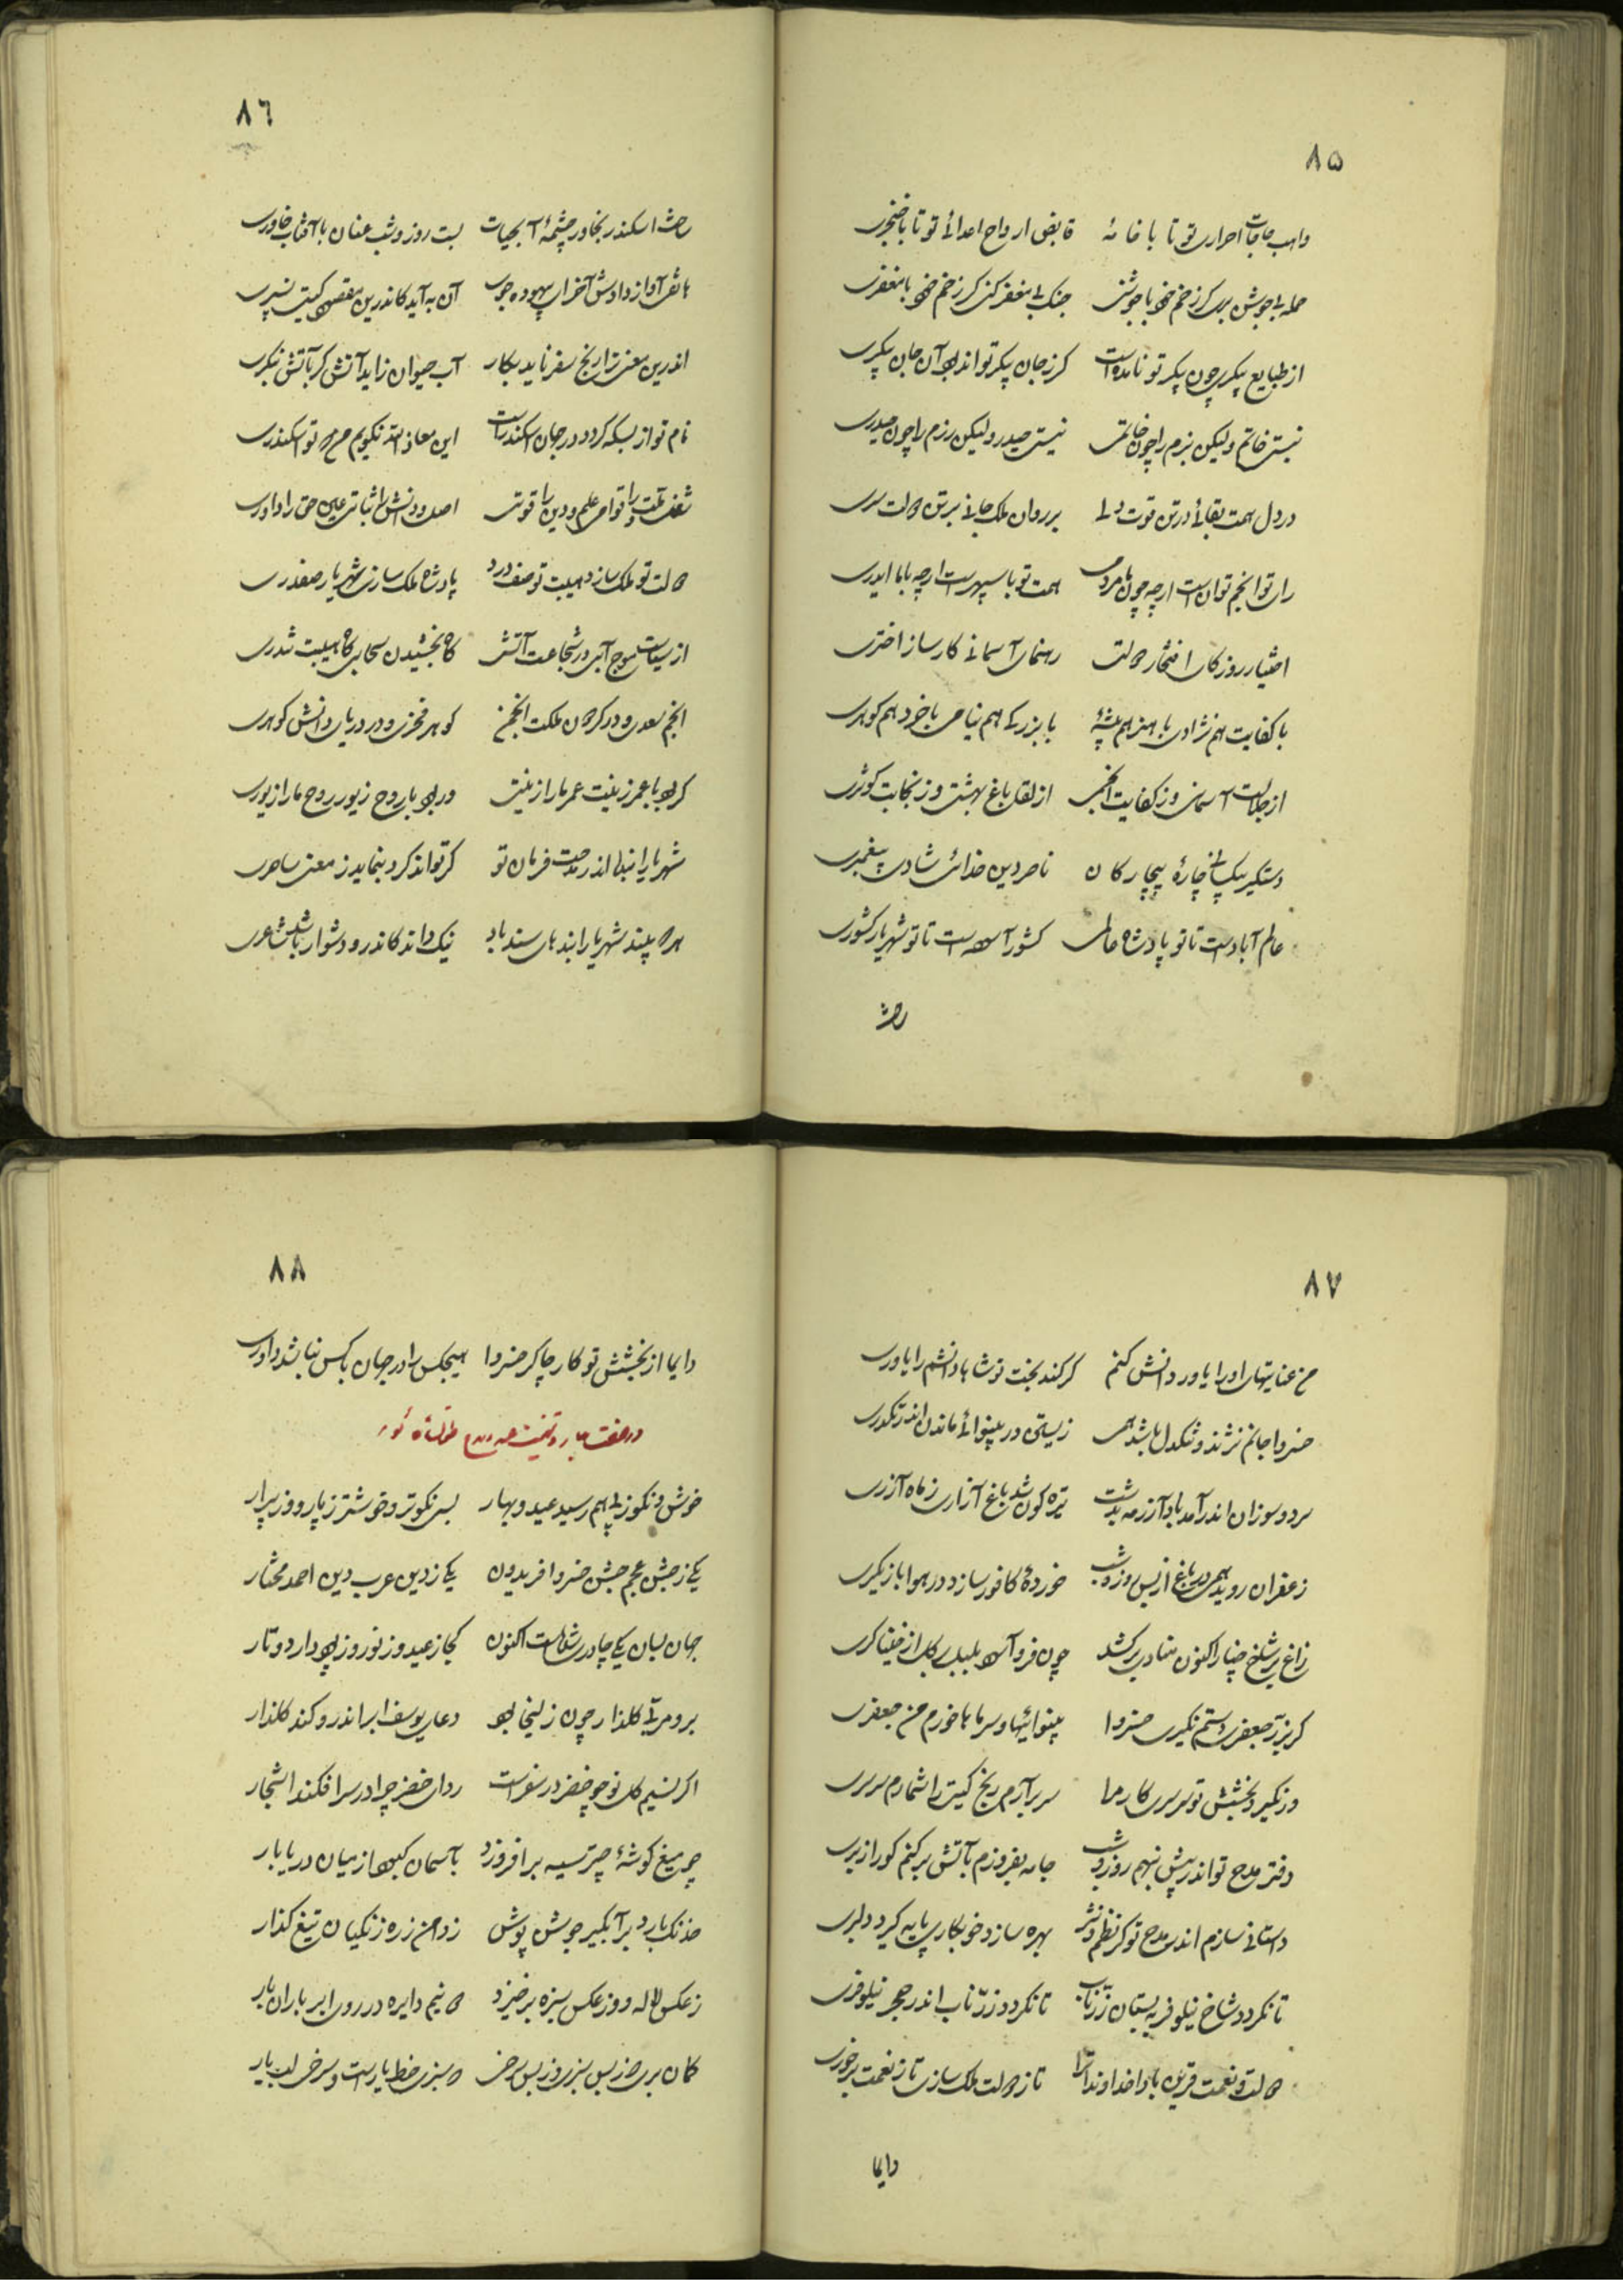 ۸۵
واهب حاجات احراری تو تا با خامهٔ قابض ارواح اعدائی تو تا با خنجری
حمله بی جوشن بری کز زخم خود با جوشنی جنگ بی مغفر کنی کز زخم خود با مغفری
از طبایع پیکری چون پیکر تو نامده است کز جان پیکر تواند بود آن جان پیکری
نیستی خاتم ولیکن بزم را چون خاتمی نیستی حیدر ولیکن رزم را چون حیدری
در دل همت بقائی در تن قوت دلی بر روان ملک جانی بر تن دولت سری
رای تو انجم توان است ارچه چون ما مردمی همت تو با سپهر است ارچه با ما ایدری
اختیار روزگار افتخار دولتی رهنمای آسمانی کارساز اختری
با کفایت هم نژادی با هنر هم پیشهٔ با بزرگی هم نیامی با خرد هم گوهری
از جلالت آسمانی وز کفایت انجمی از لقا باغ بهشتی وز نجابت کوثری
دستگیر بیکسانی چارهٔ بیچارگان ناصر دین خدائی شادی پیغمبری
عالم آباد است تا تو پادشاه عالمی کشور آسوده است تا تو شهریار کشوری
رخش
۸۶
رخش اسکندر بخاور چشمهٔ آبحیات بست روز و شب عنان با آفتاب خاوری
هاتفی آواز دادش آخر ای بیهوده جوی آن به آید کاندرین مقصود گیتی نسپری
اندرین معنی ترا رنج سفر ناید بکار آب حیوان زاید آتش گر بآتش بنگری
نام تو از بسکه گردد در جهان اسکندر است این معاذالله نگویم من که تو اسکندری
شغل ملت را قوامی علم و دین را قوتی اصل دانش را ثباتی عین حق را داوری
دولت تو ملک سازد هیبت تو صف درد پادشاه ملک سازی شهریار صفدری
از سیاست موج آبی در شجاعت آتشی گاه بخشیدن سحابی گاه هیبت تندری
انجم سعدی و در گردون ملکت انجمی گوهر فخری و در دریای دانش گوهری
گر بود با عمر زینت عمر ما را زینتی ور بود با روح زیور روح ما را زیوری
شهریارا بنده اندر مدحت فرمان تو گر تواند کرد بنماید ز معنی ساحری
هر که بیند شهریارا پندهای سندباد نیک داند کاندرو دشوار باشد شاعری
۸۷
من عنایتهای او را یاور دانش کنم گر کند بخت تو شاها دانشم را یاوری
خسروا جانم نژند و تنگدل باشد همی زیستن در بینوائی ماندن اندر تنگدری
سرد و سوزان اندر آمد باد آزر مه بدشت تیره گون شد باغ آزاری ز ماه آزری
زعفران روید همی در باغ از بس روز و شب خوردهٔ کافور سازد در هوا بازیگری
زاغ بر شاخ چنار اکنون منادی برکشد چون فرو آسوده بلبل بر گل از خنیاگری
گر بزرّ جعفری دستم نگیری خسروا بینوائیها و سرما با خورم من جعفری
ور نگیرد بخشش تو سرسری کار مرا سر برآرم رنج گیتی را شمارم سرسری
دفتر مدح تو اندر پیش بنهم روز و شب جامه بفروزم بآتش برکنم کور ازبری
داستانی سازم اندر مدح تو کز نظم و نثر بهره سازد خوبکاری پایه گیرد دلبری
تا نگردد شاخ نیلوفر ببستان زرّ ناب تا نگردد زرّ ناب اندر حجر نیلوفری
دولت و نعمت قرین بادا خداوندا ترا تا ز دولت ملک سازی تا ز نعمت برخوری
دایما
۸۸
دایما از بخشش تو کار چاکر خسروا هیچکس را در جهان با کس نباشد داوری
در صفت بهار و تهنیت عید و مدح طغانشاه
خوش و نکو ز پی هم رسید عید و بهار بسی نکوتر و خوشتر ز پار و ز پیرار
یکی ز جشن عجم جشن خسرو افریدون یکی ز دین عرب دین احمد مختار
جهان بسان یکی چادر شده است اکنون کجا ز عید وز نوروز پود دارد و تار
برو مرتبهٔ گلزار چون زلیخا بود دعای یوسف ابر اندرو کند گلزار
اگر نسیم گل نو چو خضر در سفر است ردای خضر چرا در سر افکند اشجار
چو میغ گوشهٔ چتر سیه برافرازد بآسمان کبود از میان دریا بار
خدنک بارد بر آبگیر جوشن پوش زدامن زره زنگیان تیغ گذار
ز عکس لاله و وز عکس سبزه برخیزد دو نیم دایره در روی ابر باران بار
گمان بری که ز بس سبزی و ز بس سرخی که سبزی خط یار است و سرخی لب یار